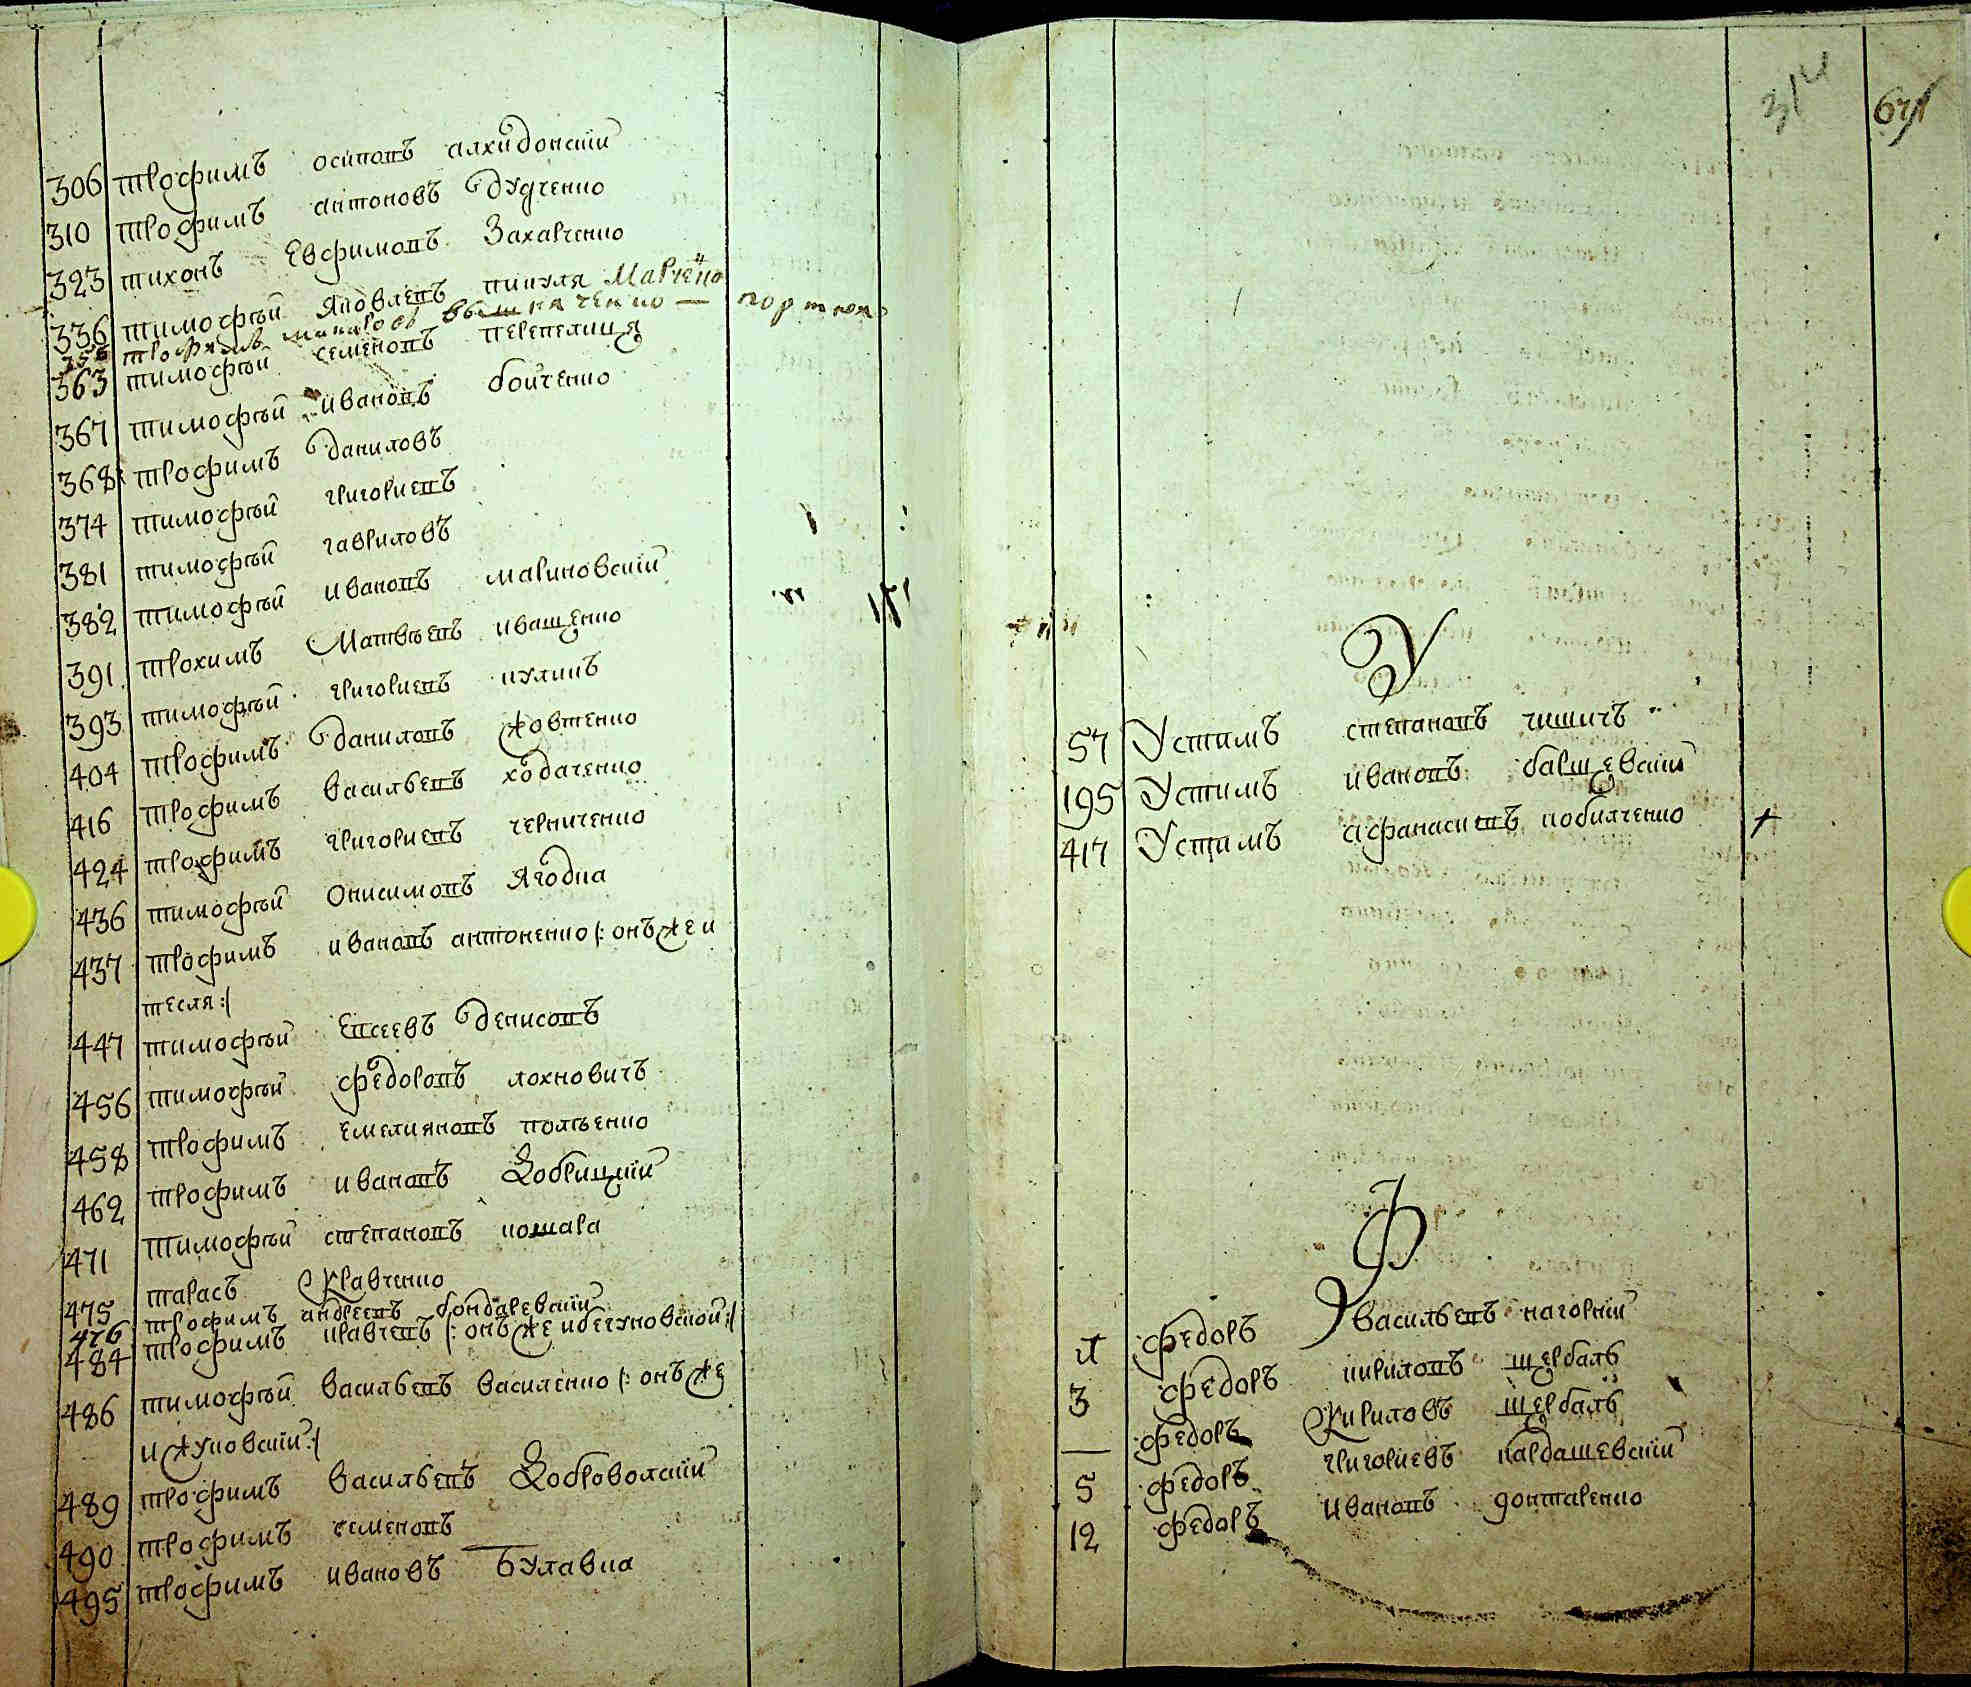 306 трофимъ осиповъ алхидонскій
310 трофимъ антоновъ дудченко
323 тихонъ Евфимовъ Захарченко
336 тимофѣй Яковлевъ пикуля Марченко
трофимъ макаровъ — портной
363 тимофѣй семеновъ перепелиця
367 тимофѣй ивановъ бойченко
368 трофимъ даниловъ
374 тимофѣй григориевъ
381 тимофѣй гавриловъ
382 тимофѣй ивановъ малиновскій
391 трохимъ Матвѣевъ иващенко
393 тимофѣй григориевъ куликъ
404 трофимъ даниловъ жовтенко
416 трофимъ васильевъ ходаченко
424 трофимъ григориевъ черниченко
436 тимофѣй Онисимовъ Ягодка
437 трофимъ ивановъ антоненко /: онъ же и
тесля :/
447 тимофѣй Евсеевъ денисовъ
456 тимофѣй федоровъ лохновичъ
458 трофимъ емелияновъ полѣенко
462 трофимъ ивановъ Добрицкій
471 тимофѣй степановъ кошара
475 тарасъ Кравченко
476 трофимъ андреевъ бондаревскій
484 трофимъ кравчевъ /: онъ же и бегуновской :/
486 тимофѣй васильевъ василенко /: онъ же
и жуковскій :/
489 трофимъ васильевъ Добровольскій
490 трофимъ семеновъ
495 трофимъ ивановъ Булавка
314 671
У
57 Устимъ степановъ чишичъ
195 Устимъ ивановъ барщевскій
417 Устимъ афанасиевъ кобилченко +
Ф
федоръ васильевъ нагорній
3 федоръ кириловъ щербалъ
— федоръ Кириловъ щербалъ
5 федоръ григориевъ кардашевскій
12 федоръ ивановъ донтаренко